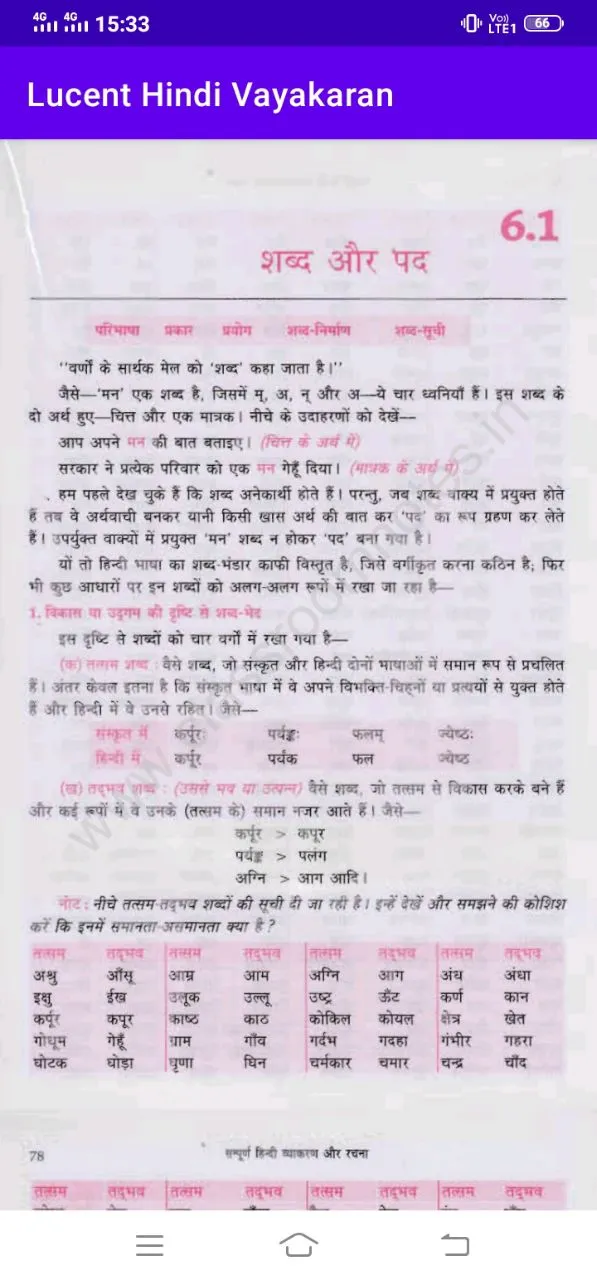 4G 4G 15:33 Vo)) LTE1 66
Lucent Hindi Vayakaran
6.1
शब्द और पद
परिभाषा प्रकार प्रयोग शब्द-निर्माण शब्द-सूची
"वर्णों के सार्थक मेल को 'शब्द' कहा जाता है।"
जैसे—'मन' एक शब्द है, जिसमें म्, अ, न् और अ—ये चार ध्वनियाँ हैं। इस शब्द के
दो अर्थ हुए—चित्त और एक मात्रक। नीचे के उदाहरणों को देखें—
आप अपने मन की बात बताइए। (चित्त के अर्थ में)
सरकार ने प्रत्येक परिवार को एक मन गेहूँ दिया। (मात्रक के अर्थ में)
हम पहले देख चुके हैं कि शब्द अनेकार्थी होते हैं। परन्तु, जब शब्द वाक्य में प्रयुक्त होते
हैं तब वे अर्थवाची बनकर यानी किसी खास अर्थ की बात कर 'पद' का रूप ग्रहण कर लेते
हैं। उपर्युक्त वाक्यों में प्रयुक्त 'मन' शब्द न होकर 'पद' बना गया है।
यों तो हिन्दी भाषा का शब्द-भंडार काफी विस्तृत है, जिसे वर्गीकृत करना कठिन है; फिर
भी कुछ आधारों पर इन शब्दों को अलग-अलग रूपों में रखा जा रहा है—
1. विकास या उद्गम की दृष्टि से शब्द-भेद
इस दृष्टि से शब्दों को चार वर्गों में रखा गया है—
(क) तत्सम शब्द : वैसे शब्द, जो संस्कृत और हिन्दी दोनों भाषाओं में समान रूप से प्रचलित
हैं। अंतर केवल इतना है कि संस्कृत भाषा में वे अपने विभक्ति-चिह्नों या प्रत्ययों से युक्त होते
हैं और हिन्दी में वे उनसे रहित। जैसे—
संस्कृत में कर्पूरः पर्यङ्कः फलम् ज्येष्ठः
हिन्दी में कर्पूर पर्यंक फल ज्येष्ठ
(ख) तद्भव शब्द : (उससे भव या उत्पन्न) वैसे शब्द, जो तत्सम से विकास करके बने हैं
और कई रूपों में वे उनके (तत्सम के) समान नजर आते हैं। जैसे—
कर्पूर > कपूर
पर्यङ्क > पलंग
अग्नि > आग आदि।
नोट : नीचे तत्सम-तद्भव शब्दों की सूची दी जा रही है। इन्हें देखें और समझने की कोशिश
करें कि इनमें समानता-असमानता क्या है ?
तत्सम तद्भव तत्सम तद्भव तत्सम तद्भव तत्सम तद्भव
अश्रु आँसू आम्र आम अग्नि आग अंध अंधा
इक्षु ईख उलूक उल्लू उष्ट्र ऊँट कर्ण कान
कर्पूर कपूर काष्ठ काठ कोकिल कोयल क्षेत्र खेत
गोधूम गेहूँ ग्राम गाँव गर्दभ गदहा गंभीर गहरा
घोटक घोड़ा घृणा घिन चर्मकार चमार चन्द्र चाँद
78 सम्पूर्ण हिन्दी व्याकरण और रचना
तत्सम तद्भव तत्सम तद्भव तत्सम तद्भव तत्सम तद्भव